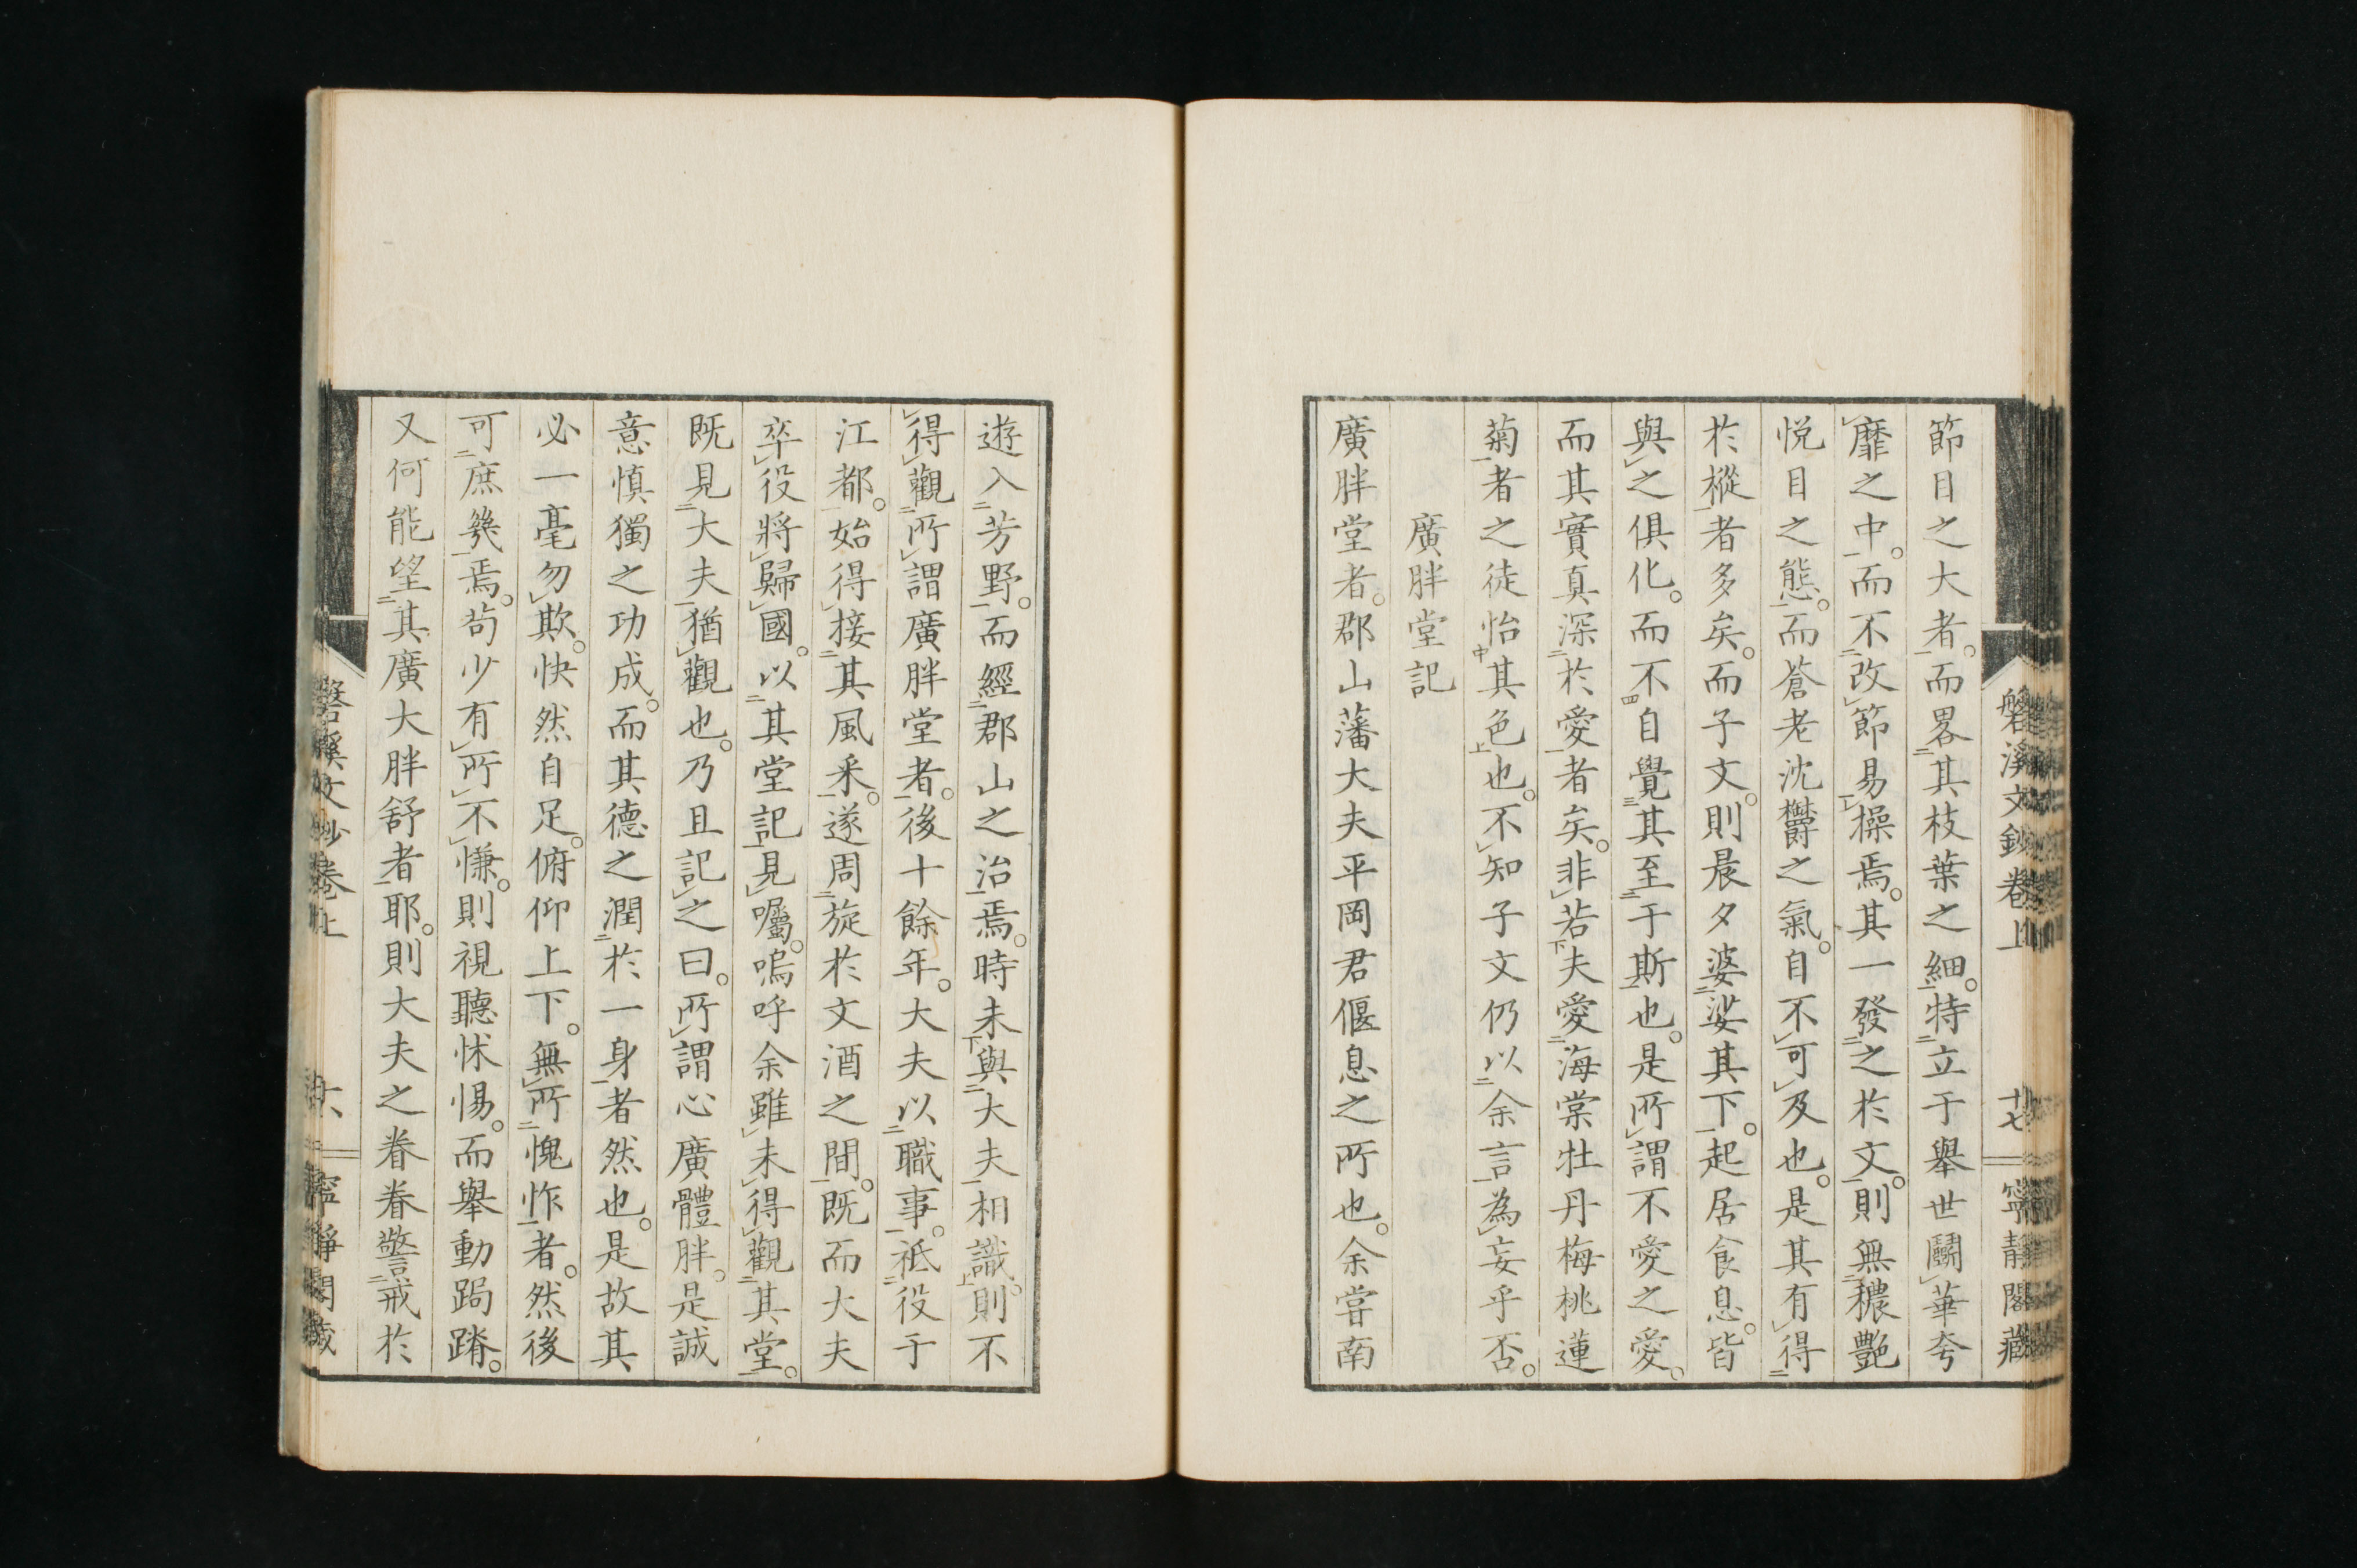 節目之大者。而畧其枝葉之細。特立于舉世鬬華夸
靡之中。而不改節易操焉。其一發之於文。則無穠艷
悦目之態。而蒼老沈欝之氣。自不可及也。是其有得
於樅者多矣。而子文。則晨夕婆娑其下。起居食息。皆
與之俱化。而不自覺其至于斯也。是所謂不愛之愛。
而其實真深於愛者矣。非若夫愛海棠牡丹梅桃蓮
菊者之徒怡其色也。不知子文仍以余言為妄乎否。
廣胖堂記
廣胖堂者。郡山藩大夫平岡君偃息之所也。余甞南
磐溪文鈔卷上
十七
寧靜閣藏
遊入芳野。而經郡山之治焉。時未與大夫相識。則不
得觀所謂廣胖堂者。後十餘年。大夫以職事。祗役于
江都。始得接其風采。遂周旋於文酒之間。既而大夫
卒役將歸國。以其堂記見囑。嗚呼余雖未得觀其堂。
既見大夫猶觀也。乃且記之曰。所謂心廣體胖。是誠
意慎獨之功成。而其德之潤於一身者然也。是故其
必一毫勿欺。快然自足。俯仰上下。無所愧怍者。然後
可庶幾焉。茍少有所不慊。則視聽怵惕。而舉動跼蹐。
又何能望其廣大胖舒者耶。則大夫之眷眷警戒於
磐溪文鈔卷上
寧靜閣藏